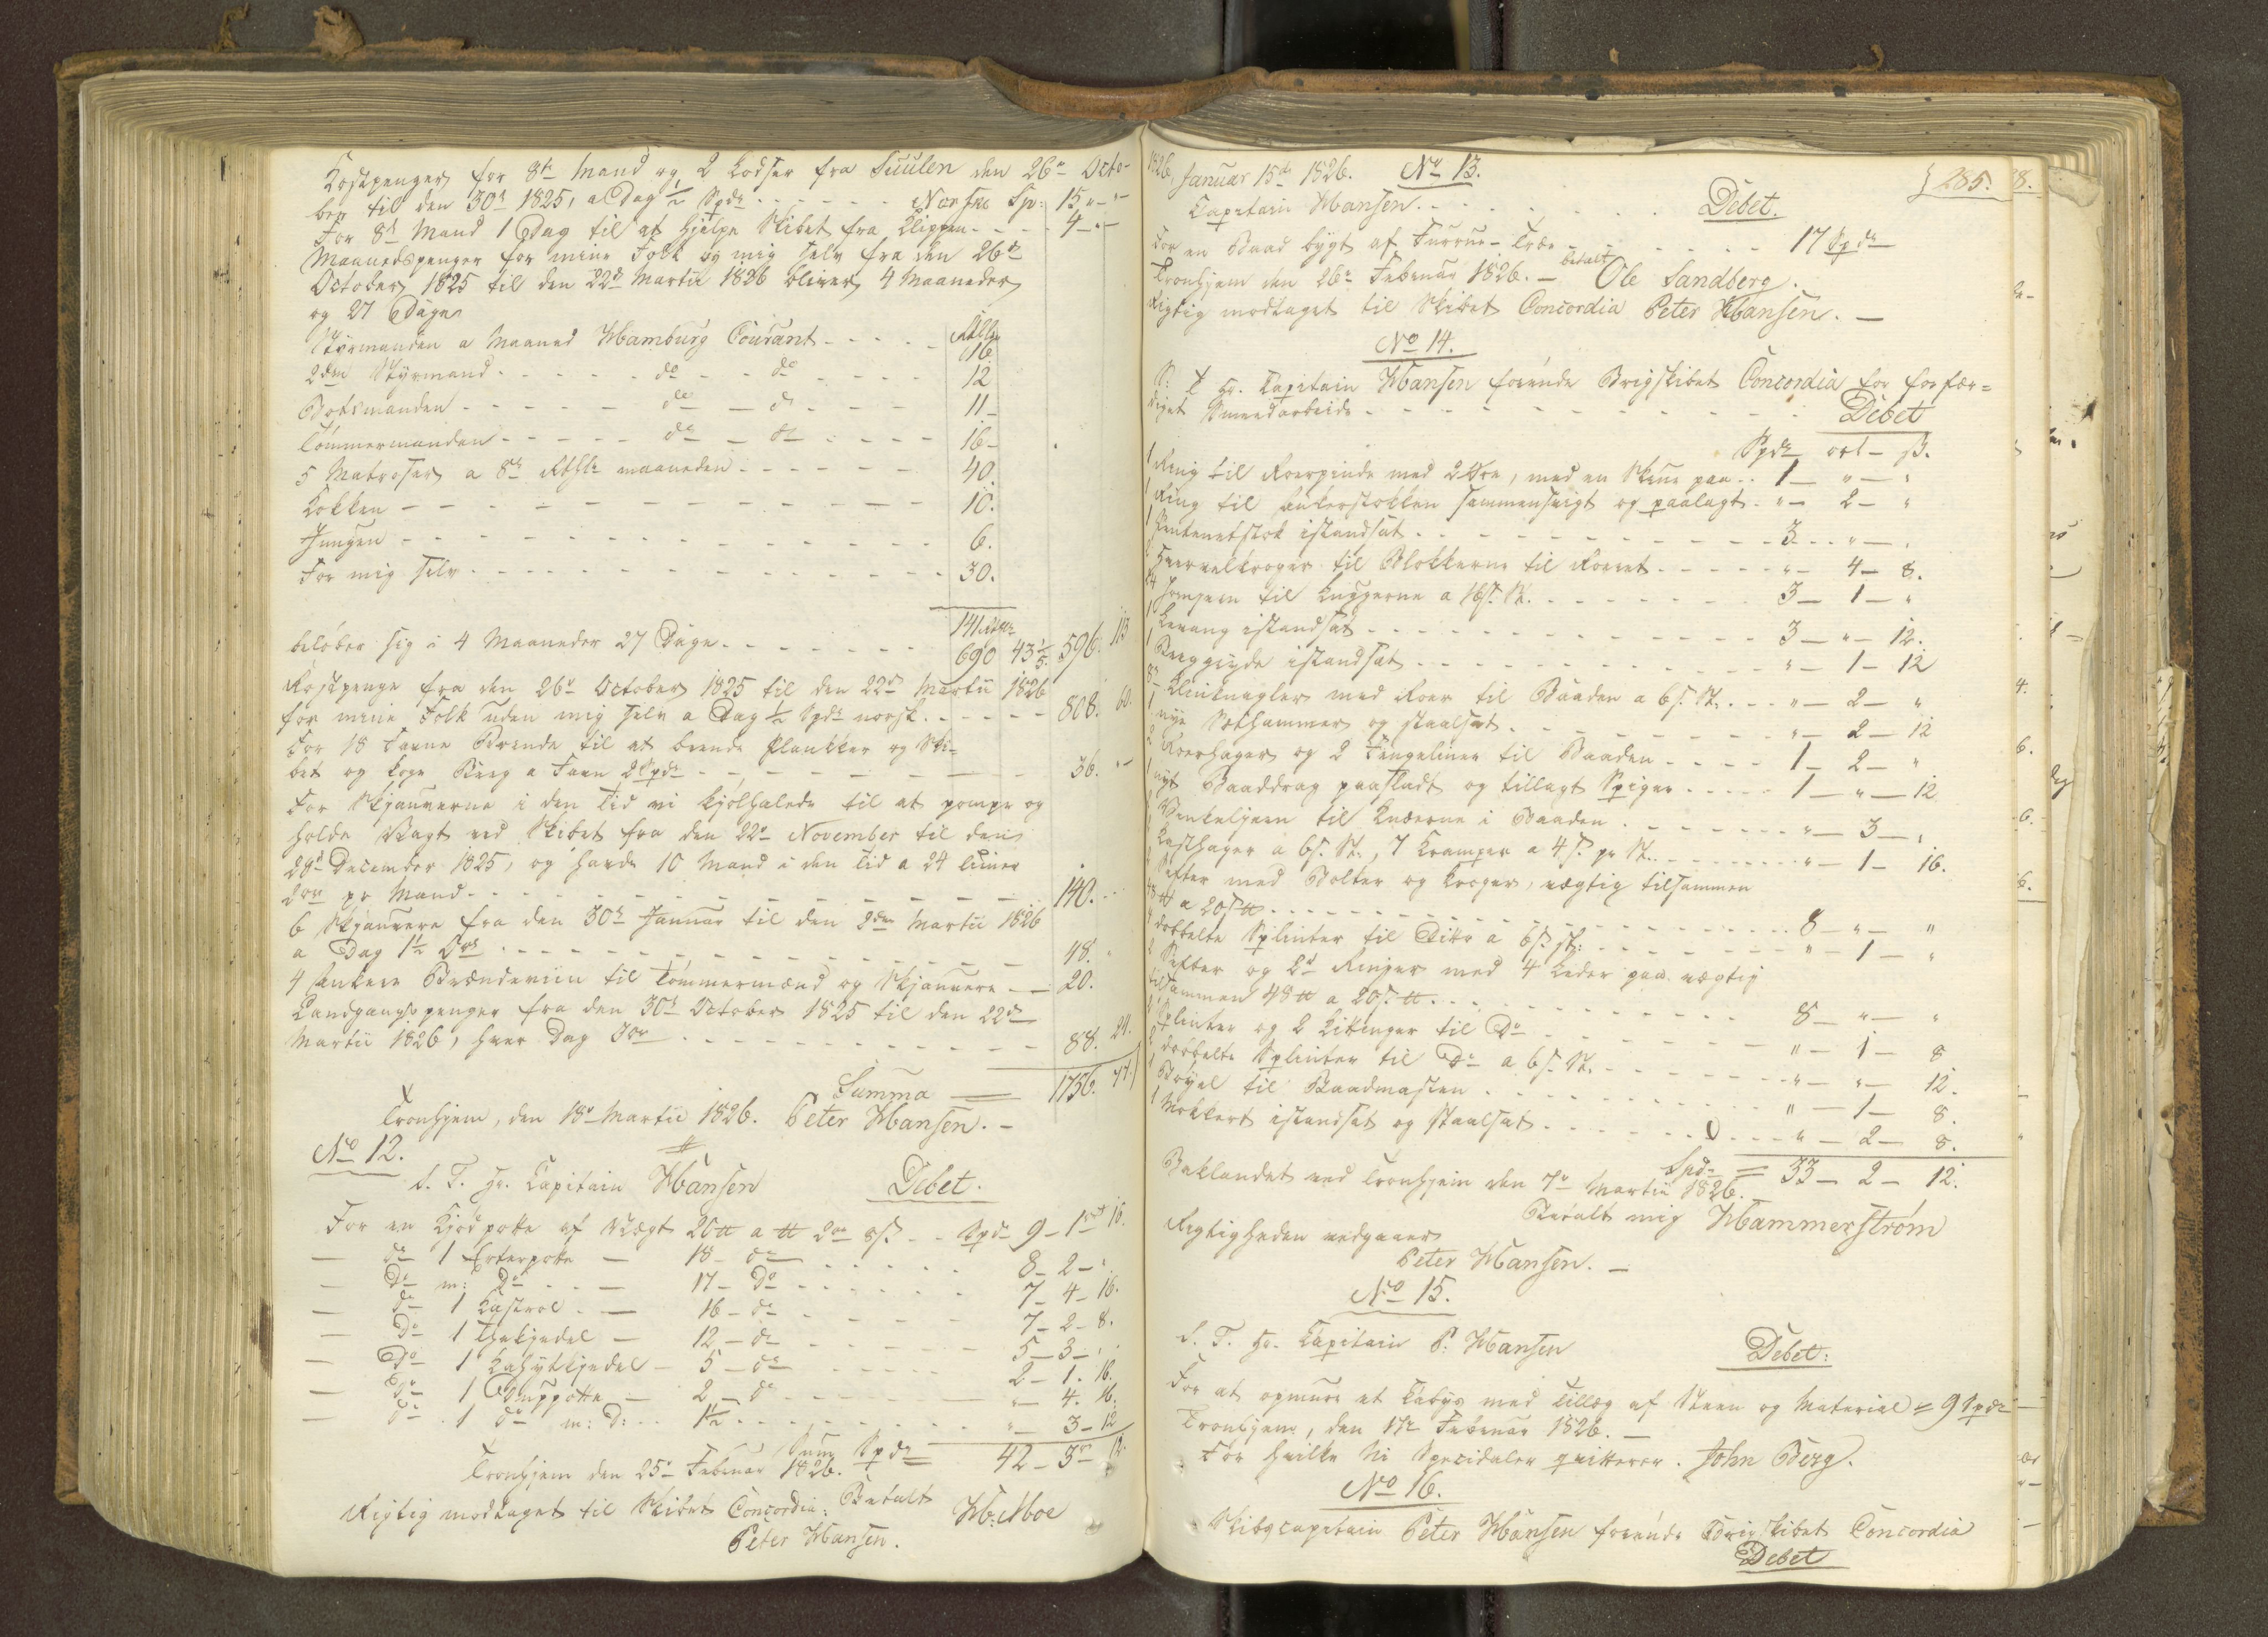 Kostpenger for 8te Mand og 2 Lodser fra Suulen den 26de Octo-
ber til den 30te 1825, a Dag ½ Spdr. - - - - - - Norske Sp: 15 „ - „ -
For 8te Mand 1 Dag til at hjelpe Skibet fra Klippen - - - - 4 - „ -
Maanedspenger for mine Folk og mig selv fra den 26de
October 1825 til den 22de Martii 1826 bliver 4 Maaneder
og 27 Dage
Styrmanden a Maaned Hamburg Courant - - - - - 16
2den Styrmand - - - - - do - - do - - - - 12
Botsmanden - - - - - do - do - - - 11 -
Tömmermanden - - - - - do - do - - - - 16 -
5 Matroser a 8te Rthlr maaneden - - - - - - 40.
Kokken - - - - - - - - - - 10.
Jungen - - - - - - - - - - 6.
For mig selv - - - - - - - - - - 30.
141
belöber sig i 4 Maaneder 27 Dage - - - - - - - 690 43⅕ 596. 113
Kostpenge fra den 26de October 1825 til den 22de Martii 1826
for mine Folk uden mig selv a Dag ½ Spdr norsk - - - - - 808. 60.
For 18 Favne Brende til at brende Plankker og Ski-
bet og koge Beeg a Favn 2 Spdr - - - - - - - - 36. „ -
For Skjauverne i den Tid vi kjölhalede til at pompe og
holde Vagt ved Skibet fra den 22de November til den
28de December 1825, og havde 10 Mand i den Tid a 24 timer
2 ort pr Mand - - - - - - - - - - 140. - -
6 Skjauvere fra den 30te Januar til den 2den Martii 1826
a Dag 1½ Ort - - - - - - - - - - 48. „
4 Ankere Brændeviin til Tömmermænd og Skjauvere - - 20.
Landgangspenger fra den 30te October 1825 til den 22de
Martii 1826, hver Dag 3 ort - - - - - - - - - 88. 24.
Summa = 1756.
Tronhjem, den 18de Martii 1826. Peter Hansen. -
No 12.
S. T. Hr. Capitain Hansen Debet.
For en Kjödpotte af Vægt 20 ℔ a ℔ 2 ort 8 ß. - - Spdr 9 - 1 ort 16.
- do 1 Erterpotte - 18 - do - - - - - 8 - 2 - „
- do m: do - - - 17 - do - - - - - 7 - 4 - 16.
- do 1 Kastrol - - 16 - do - - - - - 7 - 2 - 8.
- do 1 Theekjedel - 12 - do - - - - - 5 - 3 - „
- do 1 Kahytkjedel - 5 - do - - - - 2 - 1. 16.
- do 1 - 2 - do - - - - - „ - 4. 16.
- do 1 do m: D: - - 1½ - - - - - „ - 3 - 12
Sum Spdr = 42 - 3 ort 12.
Tronhjem den 25de Februar 1826.
Betalt
Rigtig modtaget til Skibet Concordia. H: Moe
Peter Hansen.
1826, Januar 15de 1826. No 13. 285.
Capitain Hansen - - - - - - - Debet.
For en Baad bygt af Furrue-Træe - - - - - - 17 Spdr
Tronhjem den 26de Februar 1826. - betalt Ole Sandberg.
Rigtig modtaget til Skibet Concordia Peter Hansen. -
No 14.
S: T Hr. Capitain Hansen förende Brigskibet Concordia for forfær=
diget Smeedarbeide - - - - - - - - - Debet
Spdr ort - ß.
1 Ring til Roerpinde med 2 Öre, med en Skine paa - - 1 - „ - „
1 Ring til Ankerstokken sammensveigt og paalagt - „ - 2 - „
1 istandsat - - - - - - - - 3 - - „ - „
til Blokkerne til Roeret - - - - - „ - 4 - 8.
24 til Kuggerne a 16 ß. St. - - - - - - - 3 - 1 - „
1 istandsat - - - - - - - - - - 3 - „ - 12.
1 Beeggryde istandsat - - - - - - - - - - „ - 1 - 12
8 Klinknagler med Roer til Baaden a 6 ß. St. - - - „ - 2 - „
1 nye Sæthammer og staalsat - - - - - - - - „ - 2 - 12
2 Roerhager og 2 til Baaden - - - - 1 - 2 - „
1 nyt Baaddrag paaslaadt og tillagt Spiger - - - - - 1 - „ - 12
Vinkeljern til Knæerne i Baaden - - - - - - - „ - 3 - „
Kasthager a 6 ß. St., 7 Kramper a 4 ß. pr St. - - - - - - „ - 1 - 16.
med Bolter og Kroger, vægtig tilsammen
48 ℔ a 20 ß ℔ - - - - - - - - - - - 8 - „ - „
4 dobbelte Splinter til Ditto a 6 ß. st: - - - - - - „ - 1 - „
2 og 2de Ringer med 4 Leder paa vægtig
tilsammen 48 ℔ a 20 ß. ℔ - - - - - - - - 8 - „ - „
Splinter og 2 til Do - - - - - - - „ - 1 - 8
2 dobbelte Splinter til Do a 6 ß. St. - - - - - - „ - „ - 12.
1 Böyel til Baadmasten - - - - - - - - „ - 1 - 8.
1 Mokkert istandsat og staalsat - - - - - - - „ - 2 - 8.
Spdr = 33 - 2 - 12.
Baklandet ved Tronhjem den 7de Martii 1826.
Betalt mig Hammerström
Rigtigheden vedgaaer
Peter Hansen. -
No 15.
S. T. Hr. Capitain P. Hansen Debet:
For at opmure et Cabys med Tillæg af Steen og Material = 9 Spdr -
Tronhjem, den 17de Februar 1826. -
For hvilke Ni Speciedaler qvitterer. John Berg.
No 16.
Skibscapitain Peter Hansen förende Brigskibet Concordia
Debet